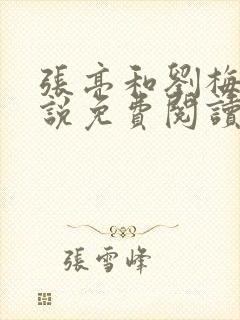 張亮和劉梅
説免費閱讀
張雪峰